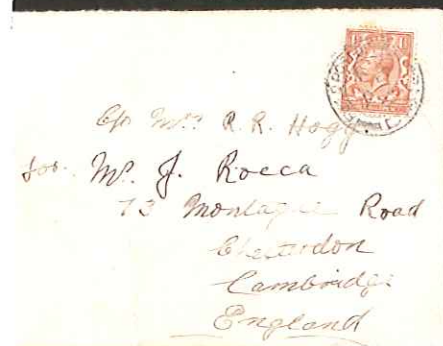 c/o Mrs. R. R. Hogg
for. Mr. J. Rocca
73 Montague Road
Chesterdon
Cambridge
England